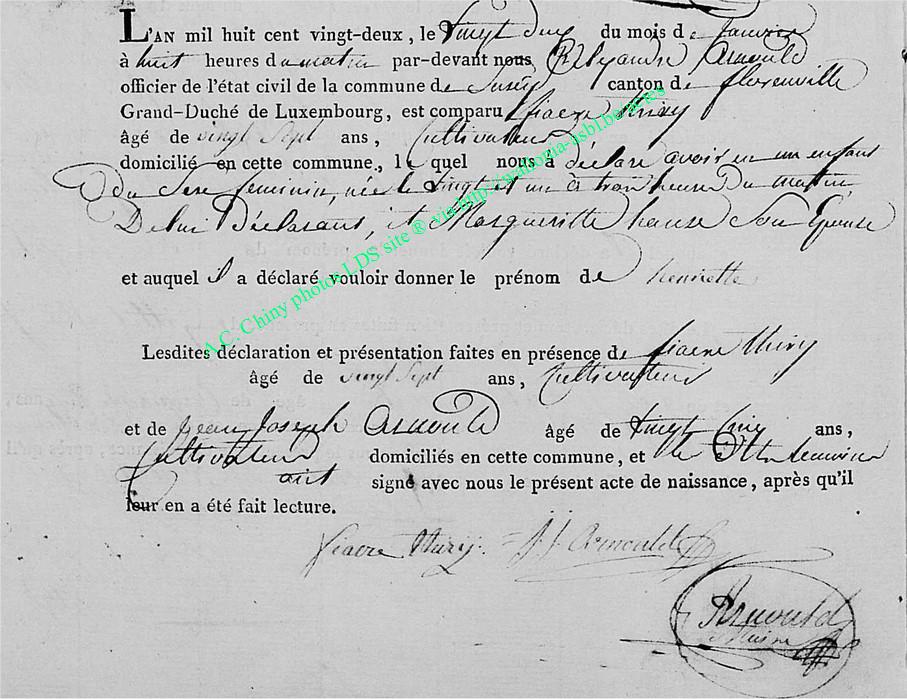 L'AN mil huit cent vingt-deux, le Vingt deux du mois de Janvier
à huit heures du matin par-devant nous Arnould
officier de l'état civil de la commune de canton de florenville
Grand-Duché de Luxembourg, est comparu fiacre thiry
âgé de vingt Sept ans, Cultivateur
domicilié en cette commune, lequel nous à déclare avoir eu un enfant
du Sexe feminin, née le Vingt et un à trois heures Du matin,
De lui Déclarant, et Margueritte hause Son Epouse
et auquel il a déclaré vouloir donner le prénom de henriette
Lesdites déclaration et présentation faites en présence de fiacre thiry
âgé de vingt Sept ans, Cultivateur
et de jean Joseph Arnould âgé de Vingt Cinq ans,
Cultivateur domiciliés en cette commune, et
ont signé avec nous le présent acte de naissance, après qu'il
leur en a été fait lecture.
fiacre thiry. J. J. Arnould
Arnould
Maire
A.C. Chiny photos LDS site ® via http://granonia-asbl.be/actes